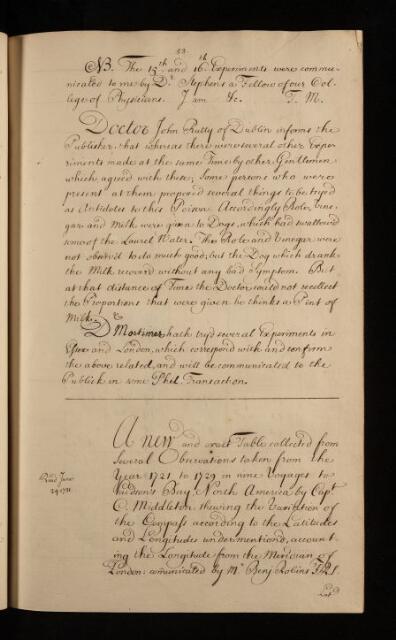 53.
NB. The 15th and 16th Experiments were commu-
nicated to me by Dr Stephens a Fellow of our Col-
lege of Physicians. I am &c. T. M.
Doctor John Rutty of Dublin informs the
Publisher, that whereas there were several other Expe-
riments made at the same Time by other Gentlemen
which agreed with these; some persons who were
present at them proposed several things to be try'd
as Antidotes to this Poison. Accordingly Bole, Vine-
gar and Milk were given to Dogs, which had swallowed
some of the Laurel Water. The Bole and Vinegar were
not observ'd to do much good; but the Dog which drank
the Milk recover'd without any bad Symptom. But
at that distance of Time the Doctor could not recollect
the Proportions that were given he thinks a Pint of
Milk.
Dr Mortimer hath try'd several Experiments in
and London, which correspond with and confirm
the above related, and will be communicated to the
Publick in some Phil. Transaction.
A new and exact Table collected from
several Observations taken from the
Year 1721 to 1729 in nine Voyages to
Hudson's Bay North America by Capt
C. Middleton shewing the Variation of
the Compass according to the Latitudes
and Longitudes undermentiond, account-
ing the Longitude from the Meridian of
London: comunicated by Mr Benj Robins F.R.S.
Read June
24 1731
Lat